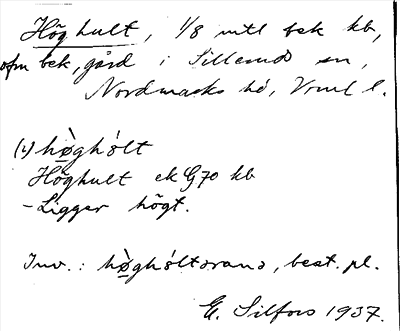 Höghult, 1/8 mtl bek kb,
ofm bek, gård i Sillerud sn,
Nordmarks hd, Vrml l.
(v) hø̀ghúlt
Höghult ek G70 kb
- Ligger högt.
Inv.: hø̀ghúltərana, best. pl.
G. Silfors 1937.